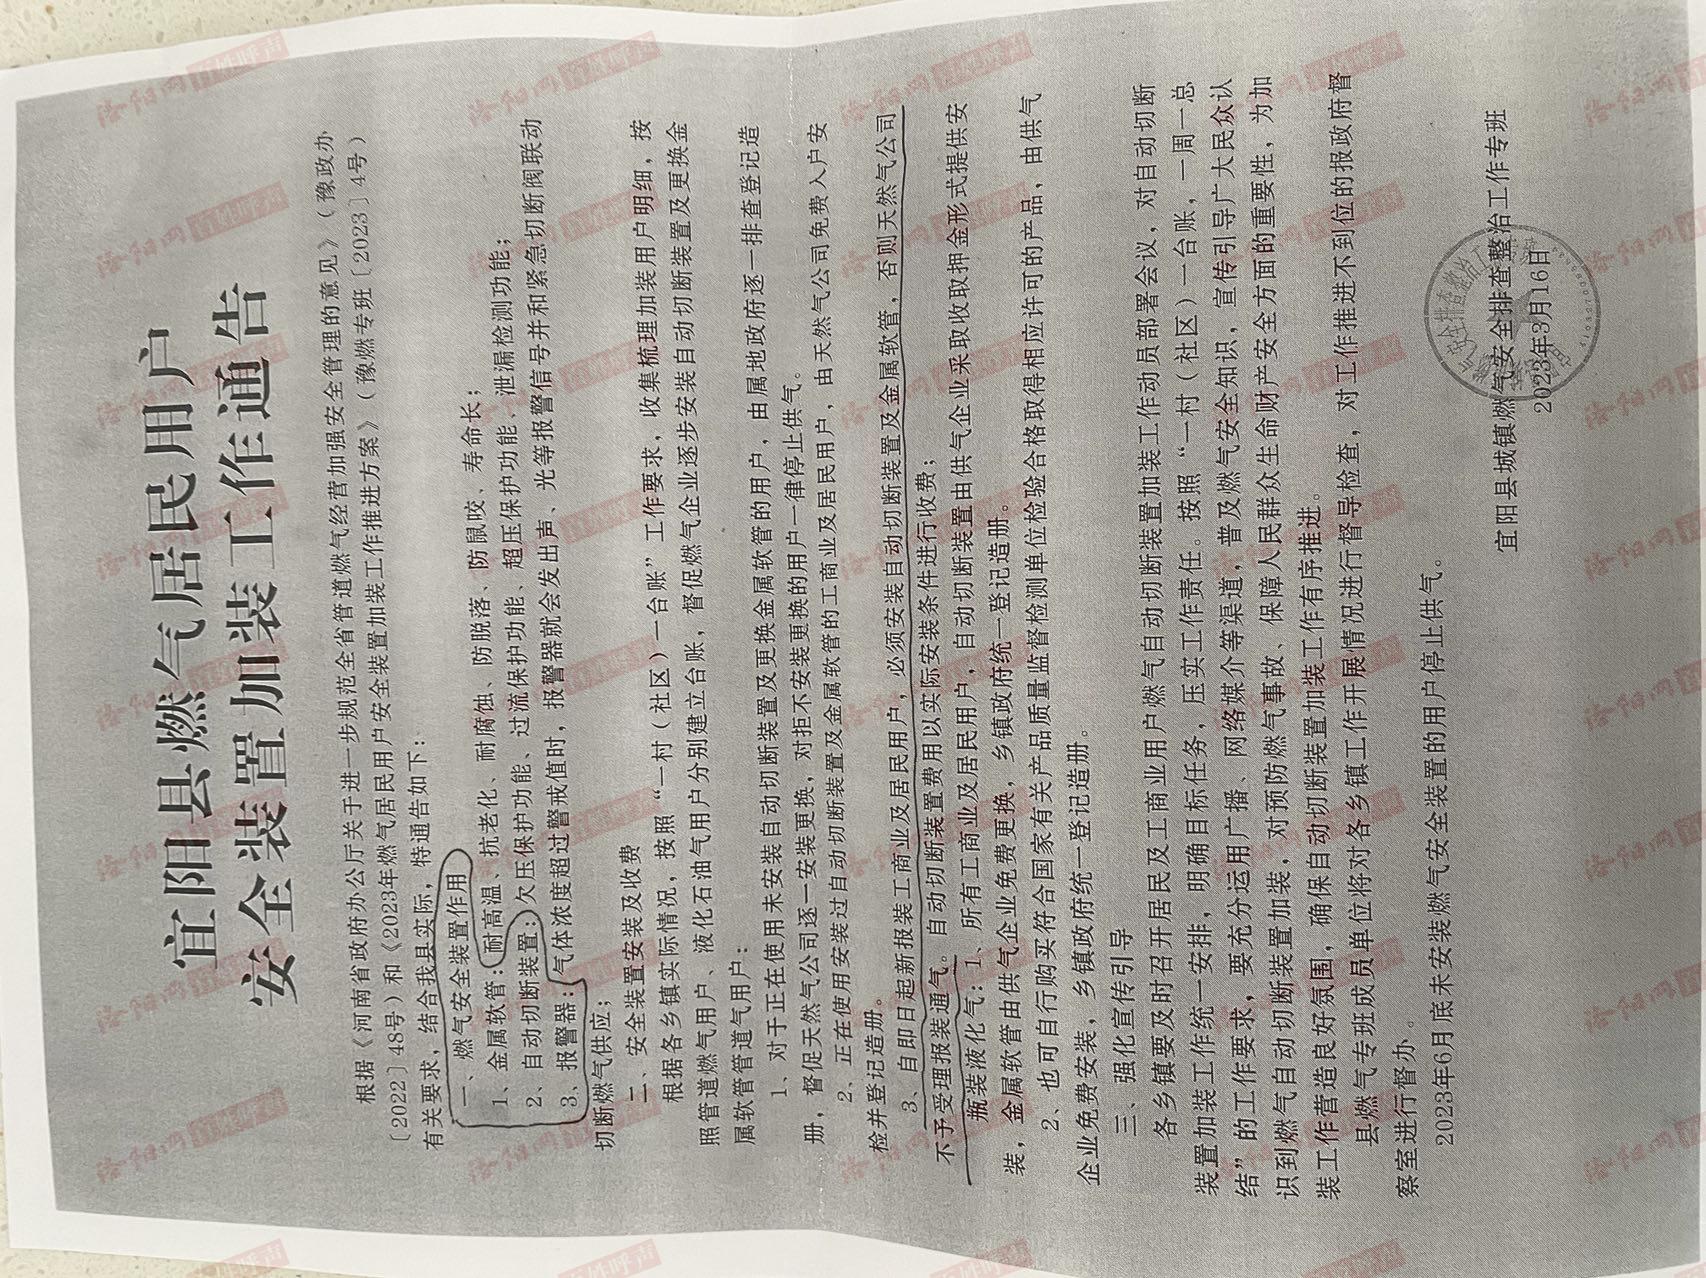 宜阳县燃气居民用户
安全装置加装工作通告
根据《河南省政府办公厅关于进一步规范全省管道燃气经营加强安全管理的意见》（豫政办
〔2022〕48号）和《2023年燃气居民用户安全装置加装工作推进方案》（豫燃专班〔2023〕4号）
有关要求，结合我县实际，特通告如下：
一、燃气安全装置作用
1、金属软管：耐高温、抗老化、耐腐蚀、防脱落、防鼠咬、寿命长；
2、自动切断装置：欠压保护功能、过流保护功能、超压保护功能、泄漏检测功能；
3、报警器：气体浓度超过警戒值时，报警器就会发出声、光等报警信号并和紧急切断阀联动
切断燃气供应；
二、安全装置安装及收费
根据各乡镇实际情况，按照“一村（社区）一台账”工作要求，收集梳理加装用户明细，按
照管道燃气用户、液化石油气用户分别建立台账，督促燃气企业逐步安装自动切断装置及更换金
属软管管道气用户：
1、对于正在使用未安装自动切断装置及更换金属软管的用户，由属地政府逐一排查登记造
册，督促天然气公司逐一安装更换，对拒不安装更换的用户一律停止供气。
2、正在使用安装过自动切断装置及金属软管的工商业及居民用户，由天然气公司免费入户安
检并登记造册。
3、自即日起新报装工商业及居民用户，必须安装自动切断装置及金属软管，否则天然气公司
不予受理报装通气。自动切断装置费用以实际安装条件进行收费；
瓶装液化气：1、所有工商业及居民用户，自动切断装置由供气企业采取收取押金形式提供安
装，金属软管由供气企业免费更换，乡镇政府统一登记造册。
2、也可自行购买符合国家有关产品质量监督检测单位检验合格取得相应许可的产品，由供气
企业免费安装，乡镇政府统一登记造册。
三、强化宣传引导
各乡镇要及时召开居民及工商业用户燃气自动切断装置加装工作动员部署会议，对自动切断
装置加装工作统一安排，明确目标任务，压实工作责任。按照“一村（社区）一台账，一周一总
结”的工作要求，要充分运用广播、网络媒介等渠道，普及燃气安全知识，宣传引导广大民众认
识到燃气自动切断装置加装，对预防燃气事故、保障人民群众生命财产安全方面的重要性，为加
装工作营造良好氛围，确保自动切断装置加装工作有序推进。
县燃气专班成员单位将对各乡镇工作开展情况进行督导检查，对工作推进不到位的报政府督
察室进行督办。
2023年6月底未安装燃气安全装置的用户停止供气。
宜阳县城镇燃气安全排查整治工作专班
2023年3月16日
洛阳网 百姓呼声